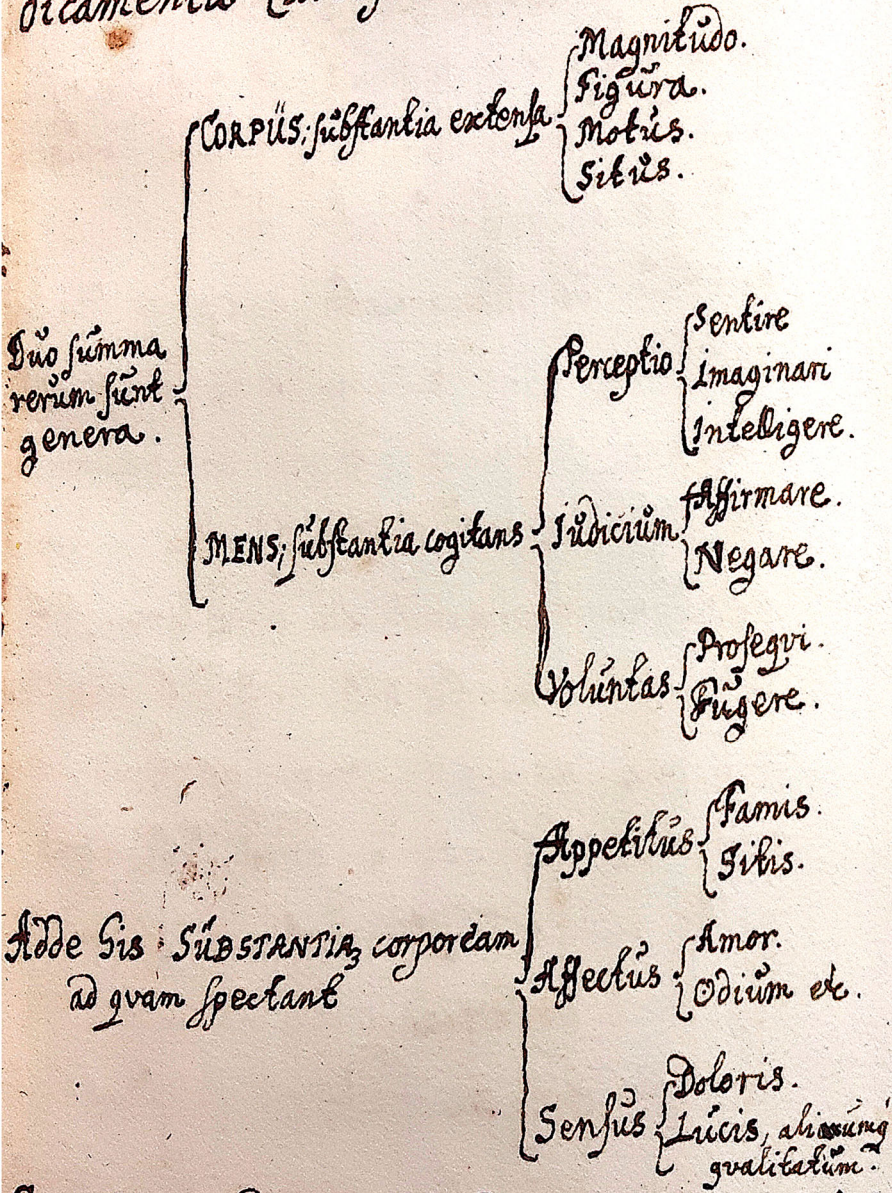 dicamentis
CORPUS; substantia extensa
Magnitudo.
Figura.
Motus.
Situs.
Duo summa
rerum sunt
genera.
MENS; substantia cogitans
Perceptio
Sentire
Imaginari
Intelligere.
Iudicium
Affirmare.
Negare.
Voluntas
Prosequi.
Fugere.
Adde his SUBSTANTIAꝫ corpoream
ad quam spectant
Appetitus
Famis.
Sitis.
Affectus
Amor.
Odium etc.
Sensus
Doloris.
Lucis, aliarumq́
qualitatum.